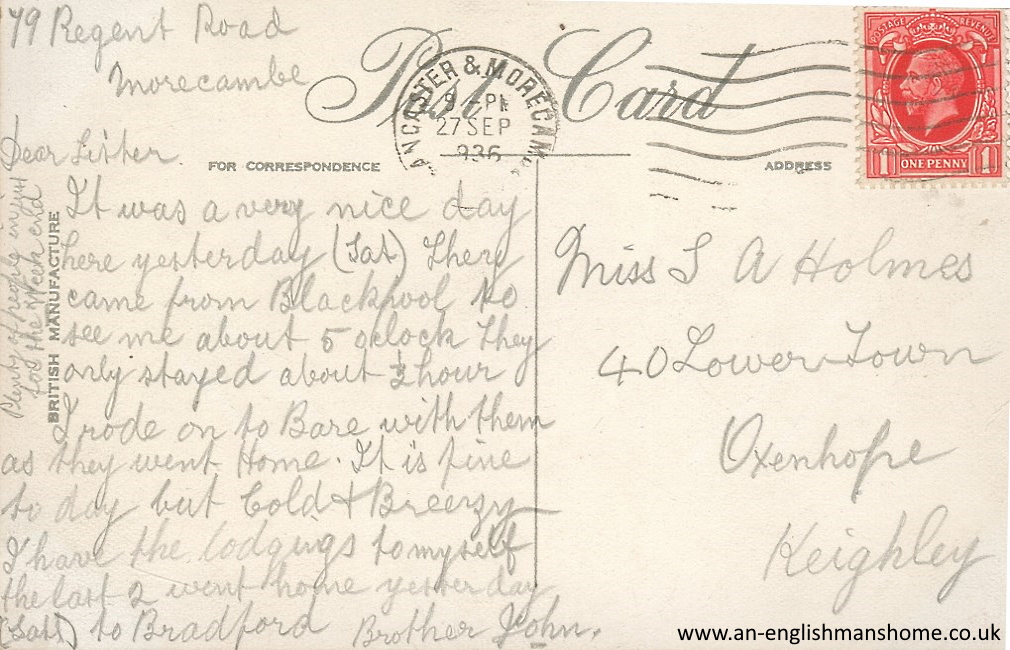 79 Regent Road
Morecambe
Dear Sister.
It was a very nice day
here yesterday (Sat) They
came from Blackpool to
see me about 5 oclock They
only stayed about ½ hour
I rode on to Bare with them
as they went Home. It is fine
to day but Cold & Breezy
I have the lodgings to myself
the last 2 went home yesterday
(Sat) to Bradford Brother John.
Plenty of people in
for the Week end
BRITISH MANUFACTURE
Post Card
FOR CORRESPONDENCE
ADDRESS
LANCASTER & MORECAM
9 - PM
27 SEP
1936
POSTAGE REVENUE
1 ONE PENNY 1
Miss S A Holmes
40 Lower Town
Oxenhope
Keighley
www.an-englishmanshome.co.uk